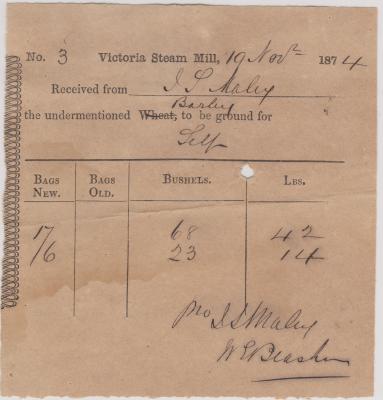 No. 3 Victoria Steam Mill, 19 Novr 1874
Received from J S Maley
Barley
the undermentioned Wheat, to be ground for
Self
BAGS NEW. BAGS OLD. BUSHELS. LBS.
17 68 42
/6 23 14
pro J S Maley
W E